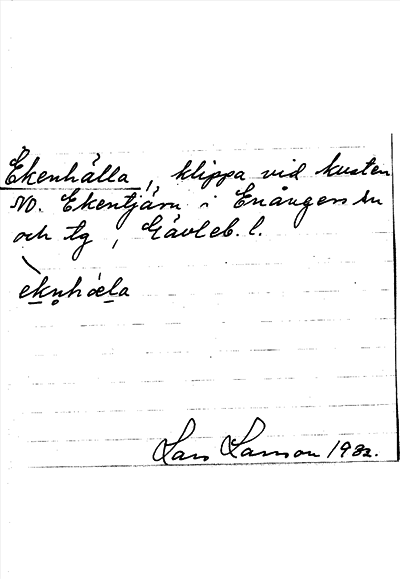 Ekenhälla, klippa vid kusten
NO. Ekentjärn i Enångers sn
och tg, Gävleb. l.
eknhæla
Lars Larsson 1932.